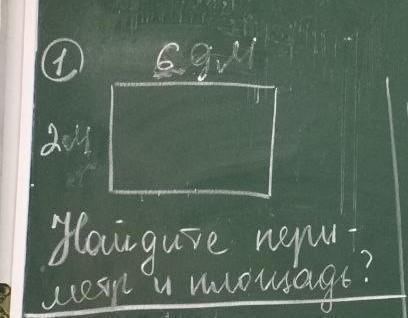 1
6 дм
2м
Найдите пери-
метр и площадь?